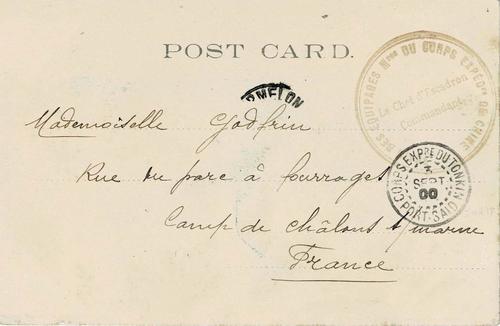 POST CARD.
DES EQUIPAGES Mres DU CORPS EXPÉDre DE CHINE
Le Chef d'Escadron
Commandant
RMELON
Mademoiselle Godfrin
Rue du parc à fourrages
Camp de châlons s/marne
France
CORPS EXPRE DU TONKIN
3
SEPT.
00
PORT-SAID